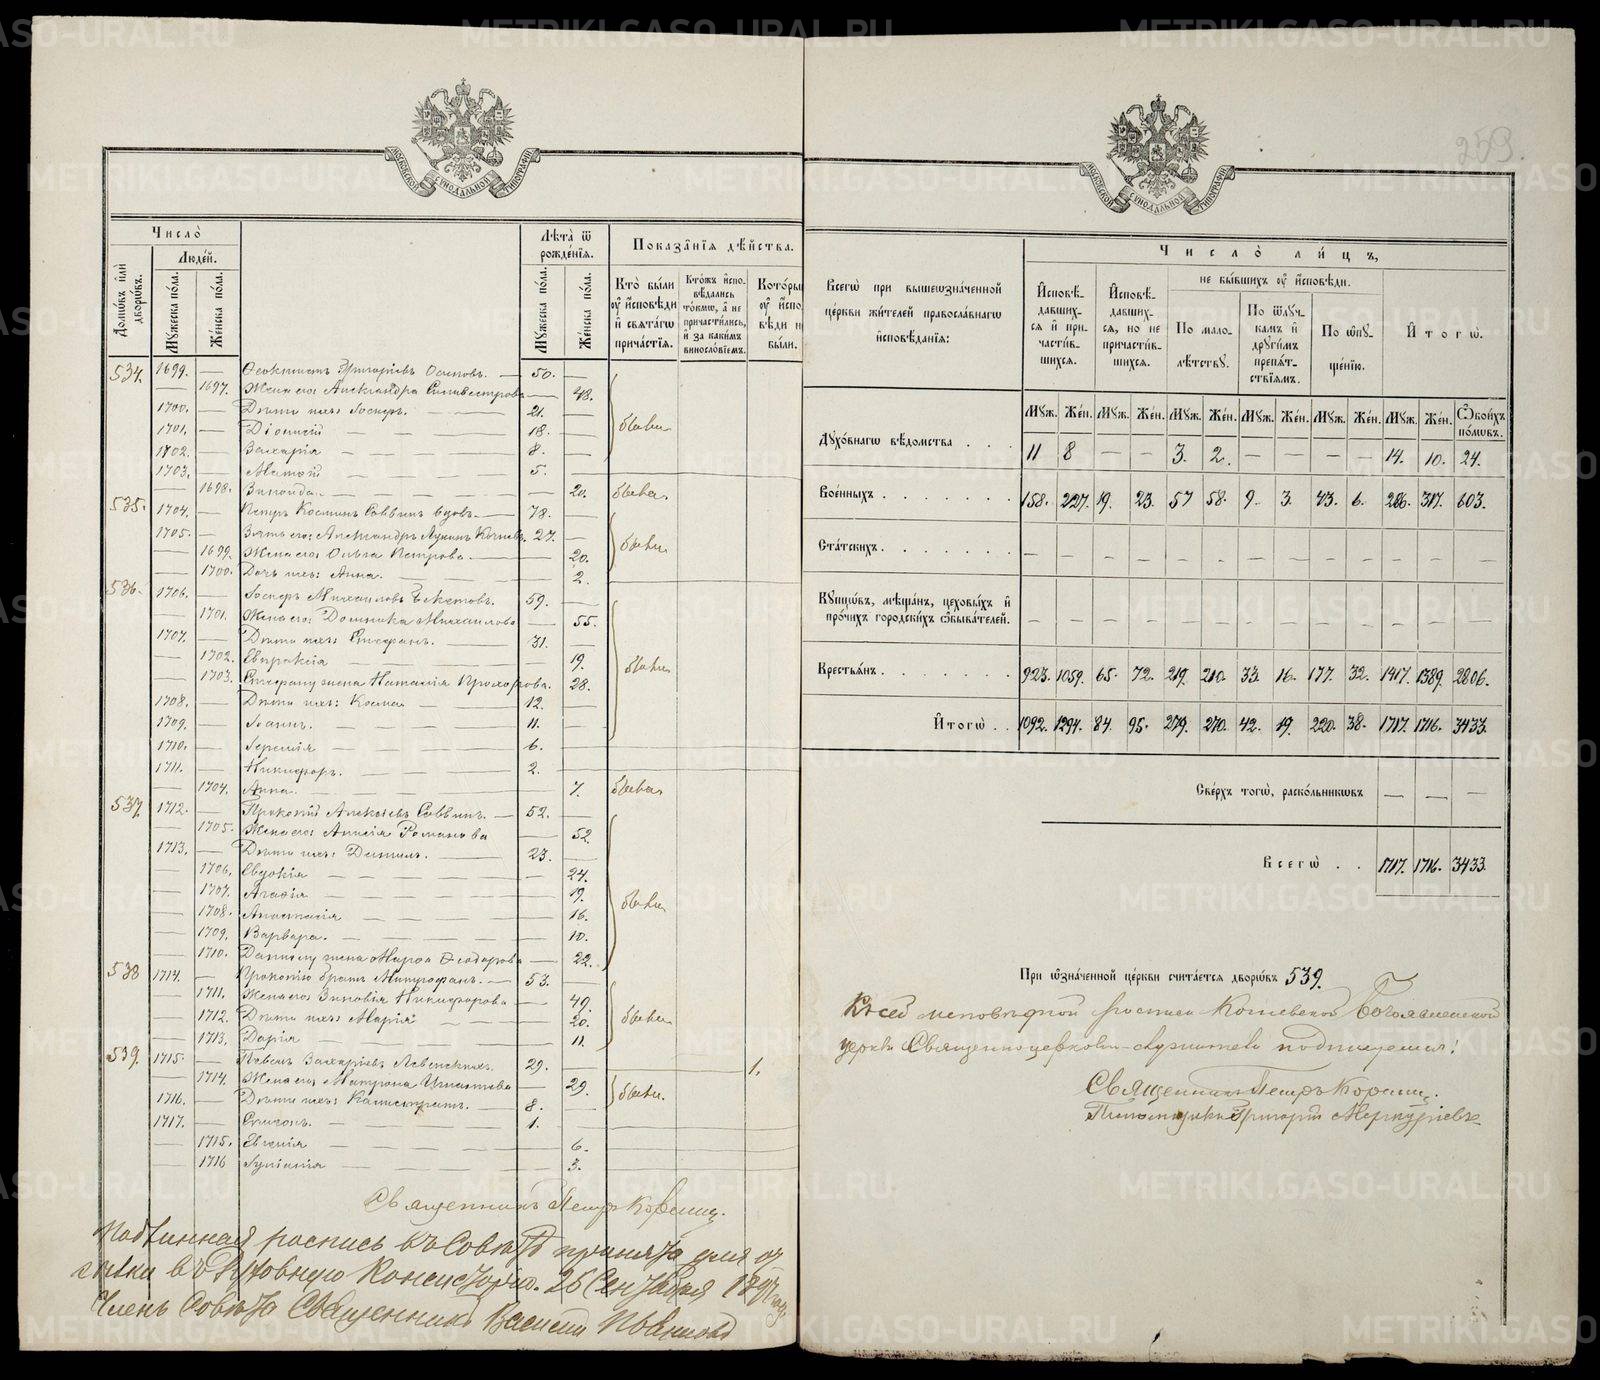 МОСКОВСКОЙ СѴНОДАЛЬНОЙ ТИПОГРАФІИ
Число̀
Людей.
Домѡвъ или дворѡвъ.
Мꙋжеска пола.
Женска пола.
Лѣта ѿ рожденїѧ.
Мꙋжеска пола.
Женска пола.
Показанїѧ дѣйства.
Кто были оу исповѣди и свѧтагѡ причастїѧ.
Ктожъ исповѣдались токмѡ, а не причастились, и за какимъ винословїемъ.
Которы оу испо вѣди н были.
534. 1699. — Ѳеоктистъ Григорьевъ Осиповъ. — 50. —
— 1697. Жена его Александра Силивестрова — 48.
1700. — Дѣти ихъ: Іосифъ. — 21. —
1701. — Діонисій — 18. — были
1702. — Захарія — 8. —
1703. — Матвій — 5.
— 1698. Зинаида. — 20. была.
535. 1704. — Петръ Косминъ Саввинъ вдовъ. — 78. —
1705. — Зять его: Александръ Лукинъ 27. — были
— 1699. Жена его Ольга Петрова. — 20.
— 1700. Дочь ихъ: Анна. — 2.
536. 1706. — Іосифъ Михаиловъ Бекетовъ. 59. —
— 1701. Жена его: Домника Михаилова — 55.
1707. — Дѣти ихъ: Стефанъ. — 31. —
— 1702. Евпраксія — 19.
— 1703. Стефану жена Наталія Прохорова. — 28. были
1708. — Дѣти ихъ: Косма — 12. —
1709. — Іоаннъ. — 11. —
1710. — Іеремія — 6. —
1711. — Никифоръ. — 2. —
— 1704. Анна. — 7. была
537. 1712. — Прокопій Алексѣевъ Саввинъ. — 52. —
— 1705. Жена его: Анисія Романова 52.
1713. — Дѣти ихъ: Даніилъ. — 23. —
— 1706. Евдокія — 24.
— 1707. Агафія — 19. были
— 1708. Анастасія — 16.
— 1709. Варвара. — 10.
— 1710. Даніилу жена Марѳа Ѳеодорова 22.
538 1714. — Прокопію братъ Митрофанъ. — 53. —
— 1711. Жена его Зиновія Никифорова — 49.
— 1712. Дѣти ихъ: Марія — 20. были
— 1713. Дарія — 11.
539. 1715. — Павелъ Захаріевъ 29. — 1.
— 1714. Жена его: Матрона Игнатьева — 29. были.
1716. — Дѣти ихъ: Каллистратъ. — 8. —
1717. — 1.
— 1715. Евгенія — 6.
— 1716 — 3.
Священникъ Петръ
Подлинная роспись въ Совѣтѣ принята для от
сылки въ Духовную Консисторію. 26 Сентября
Членъ Совѣта Священникъ Василій
259.
МОСКОВСКОЙ СѴНОДАЛЬНОЙ ТИПОГРАФІИ
Всегѡ при вышеѡзначенной церкви жителей православнагѡ исповѣданїѧ:
Число лицъ,
Исповѣдавшихсѧ и причастившихсѧ.
Исповѣдавшихсѧ, но не причастившихсѧ.
не бывшихъ оу исповѣди.
По малолѣтствꙋ.
По ѿлꙋчкамъ и дрꙋгимъ препѧтствїѧмъ.
По ѡпꙋщенїю.
Итогѡ.
Мꙋж. Жен. Мꙋж. Жен. Мꙋж. Жен. Мꙋж. Жен. Мꙋж. Жен. Мꙋж. Жен. Ѡбоихъ половъ.
Дꙋховнагѡ вѣдомства . . . 11 8 — — 3. 2. — — — — 14. 10. 24.
Военныхъ . . . . . . 158. 227. 19. 23. 57 58. 9. 3. 43. 6. 286. 317. 603.
Статскихъ . . . . . . — — — — — — — — — — — — —
Кꙋпцѡвъ, мѣщанъ, цеховыхъ и прочихъ городскихъ ѡбывателей. — — — — — — — — — — — — —
Крестьѧнъ . . . . . . 923. 1059. 65. 72. 219. 210. 33. 16. 177. 32. 1417. 1389. 2806.
Итогѡ . . 1092. 1294. 84. 95. 279. 270. 42. 19. 220. 38. 1717. 1716. 3433.
Сверхъ тогѡ, раскольникѡвъ — — —
Всегѡ . . 1717. 1716. 3433.
При ѡзначенной церкви считаетсѧ дворѡвъ 539.
Къ сей исповѣдной росписи Богоявленской
церкви Священноцерковно-служители подписуемся:
Священникъ Петръ
Псаломщикъ Григорій Меркурьевъ
METRIKI.GASO-URAL.RU